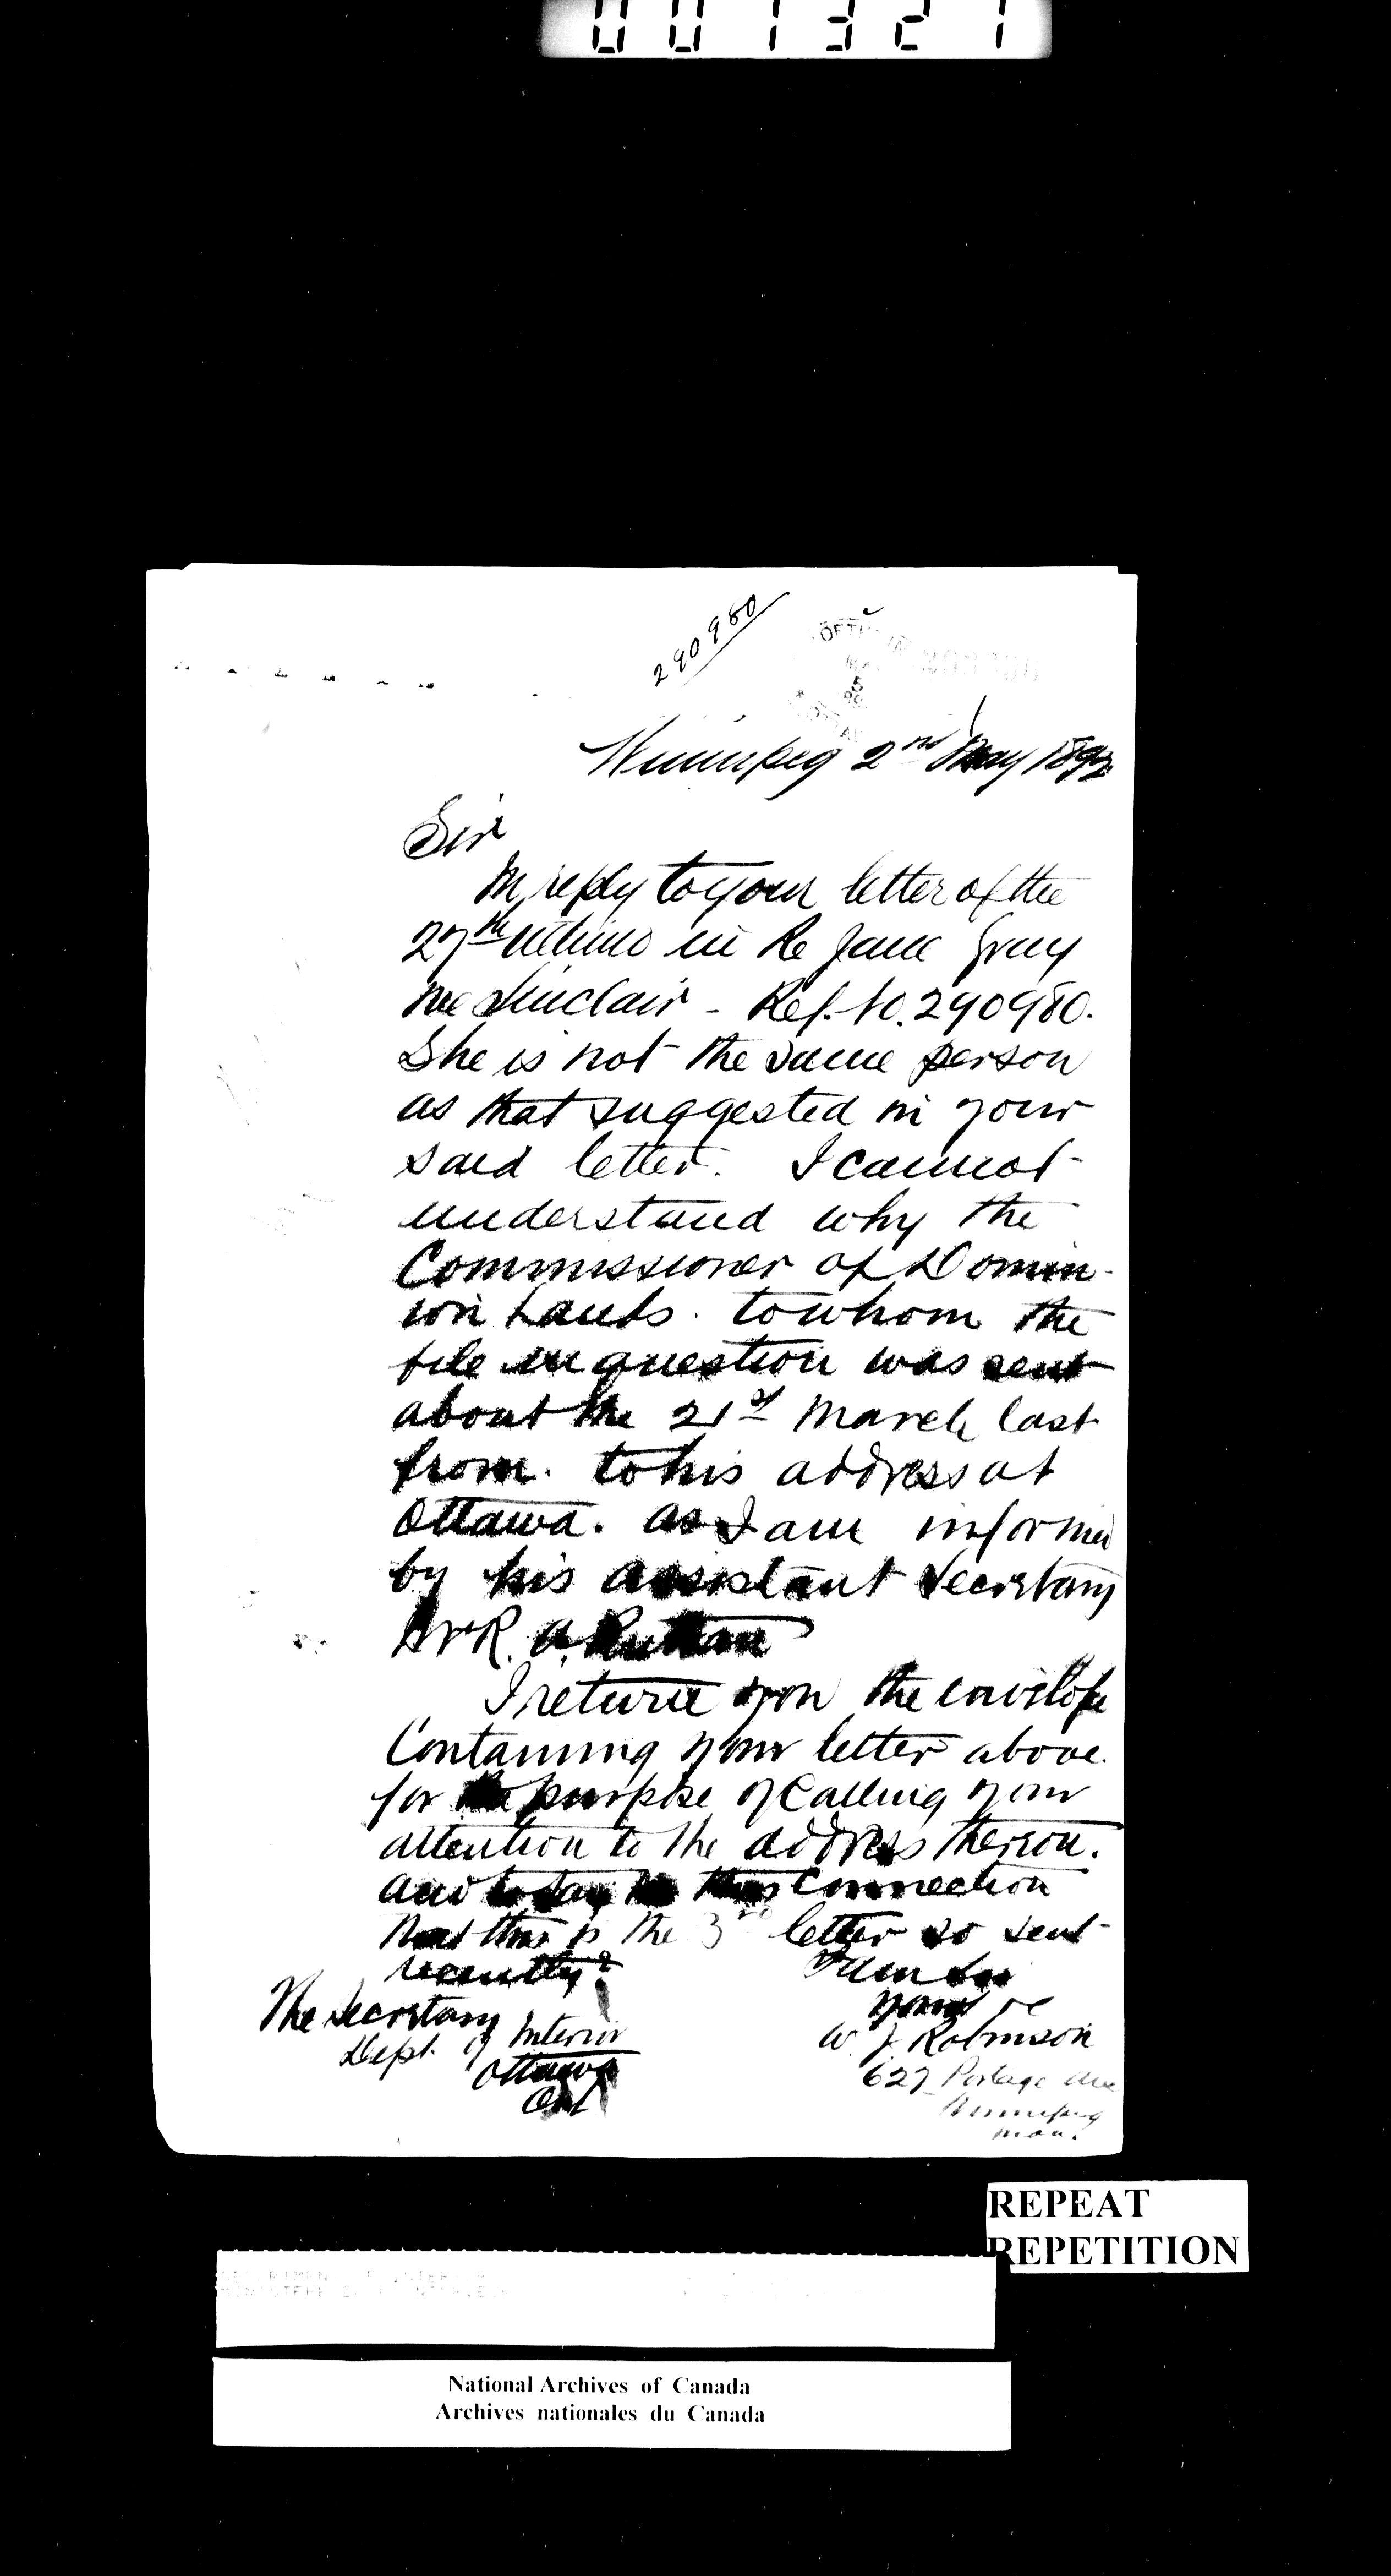 001321
290980
Winnipeg 2nd May 189
Sir
In reply to your letter of the
27th ultimo in Re Jane Gray
nee Sinclair - Ref. to. 290980.
She is not the same person
as that suggested in your
said letter. I cannot
understand why the
Commissioner of Domin-
ion Lands. to whom the
file in question was sent
about the 21st March last
from. to his address at
Ottawa. as I am informed
by his assistant Secretary
Mr R. A. Ruttan
I return you the envelope
Containing your letter above
for the purpose of Calling your
attention to the address thereon.
and to say in this Connection
that this is the 3rd letter so sent
recently.
I am Sir
Yours
W. J. Robinson
627 Portage Ave
Winnipeg
Man.
The Secretary
Dept. of Interior
Ottawa
Ont
REPEAT
REPETITION
National Archives of Canada
Archives nationales du Canada